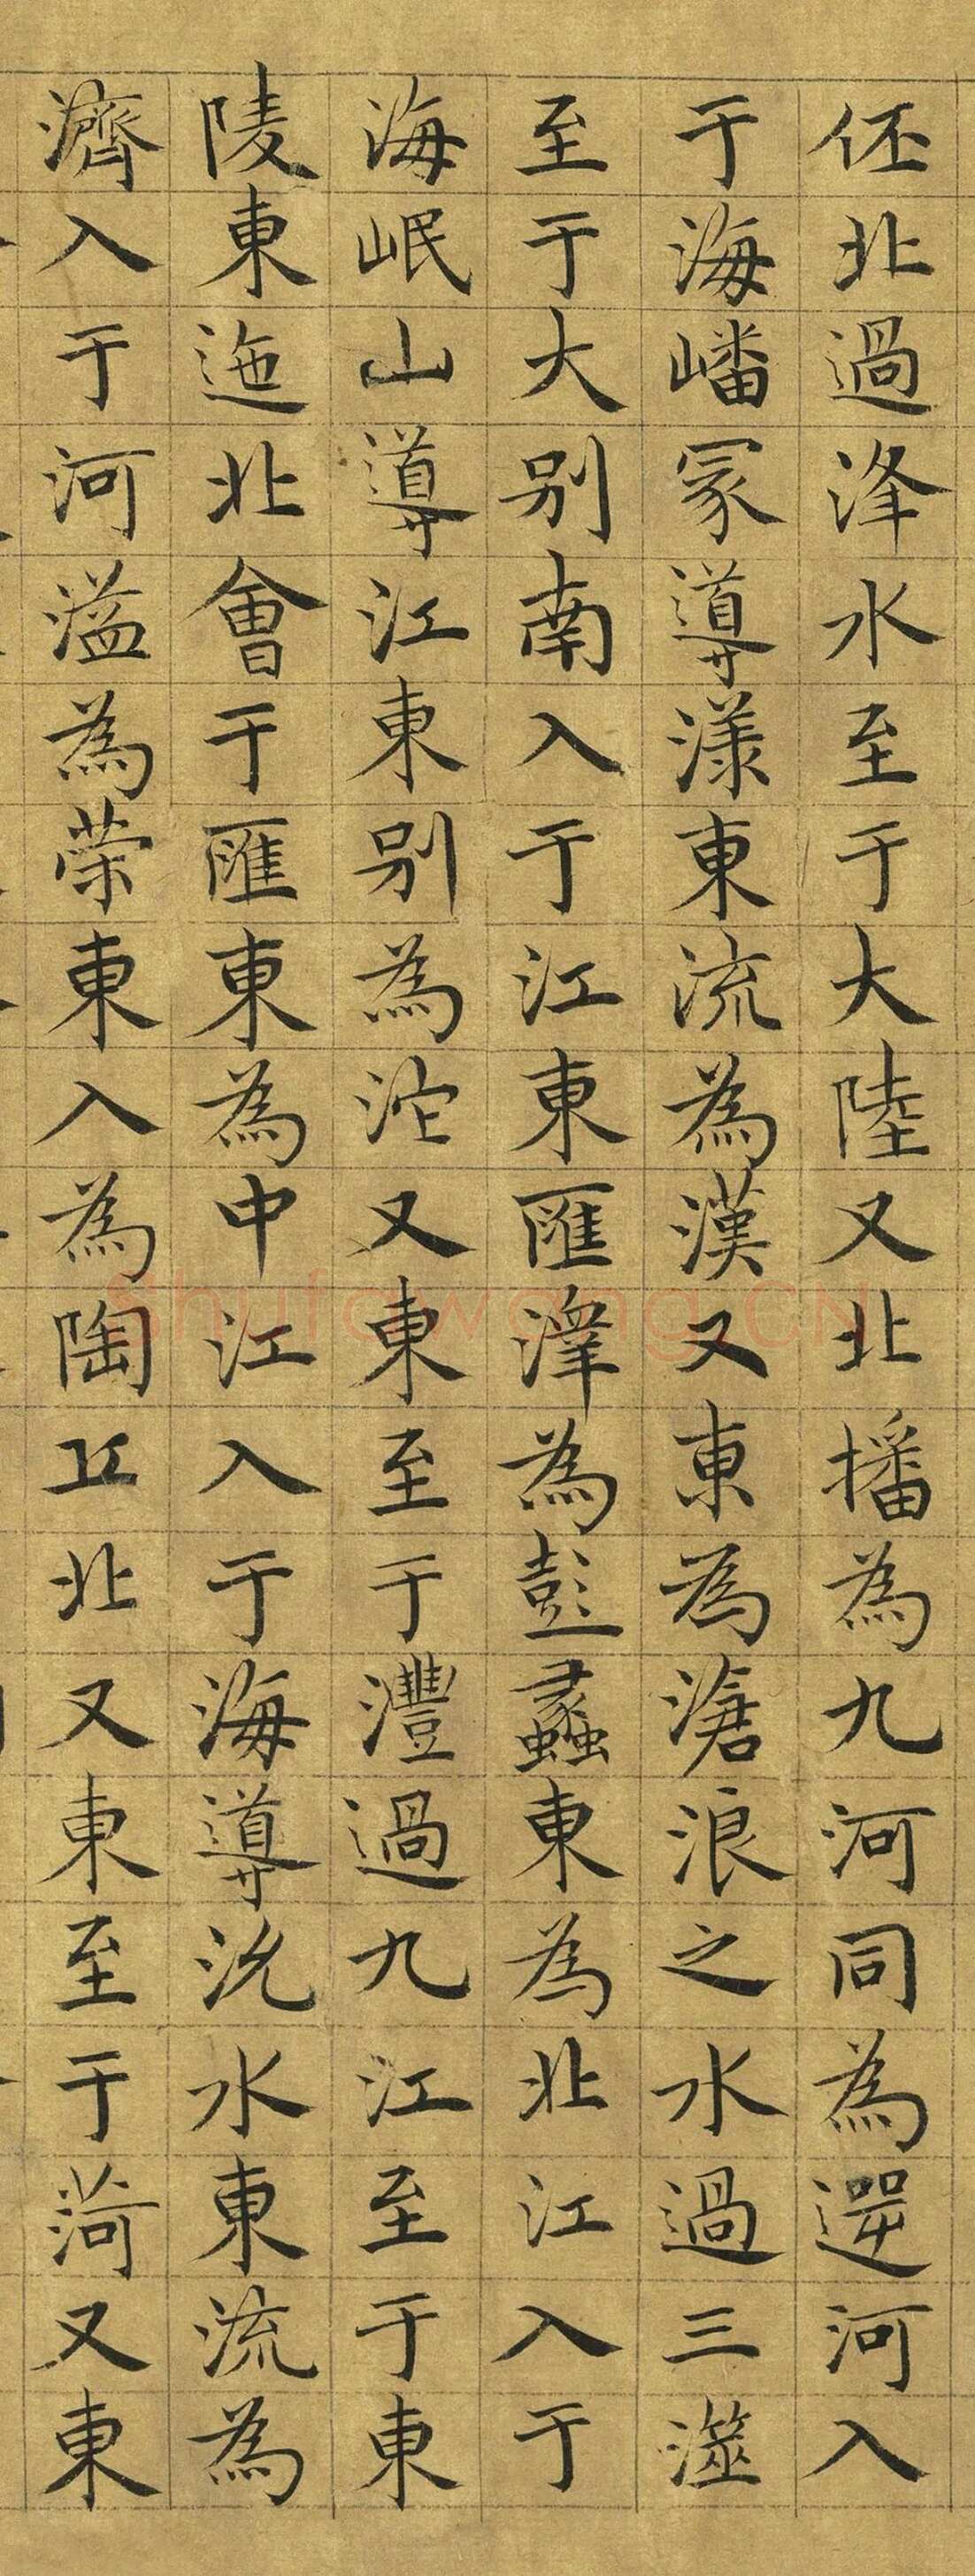 伾北過洚水至于大陸又北播為九河同為遻河入
于海嶓冢導漾東流為漢又東為滄浪之水過三澨
至于大别南入于江東匯澤為彭蠡東為北江入于
海岷山導江東别為沱又東至于澧過九江至于東
陵東迆北會于匯東為中江入于海導沇水東流為
濟入于河溢為荣東入為陶丘北又東至于菏又東
shufawang.cn